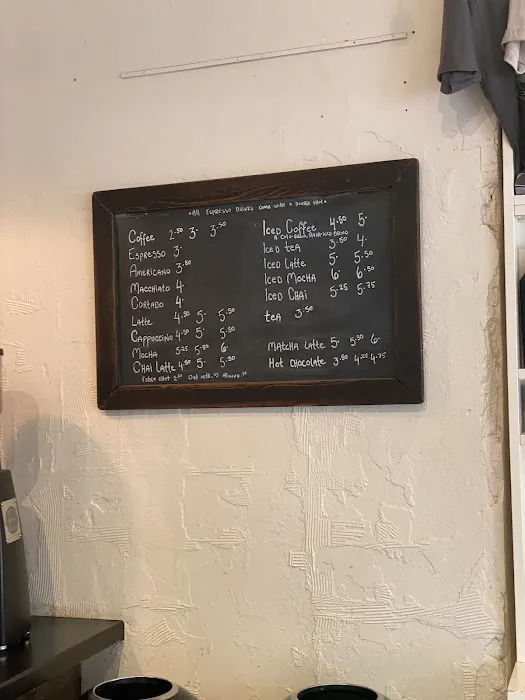 •All Espresso Drinks come with a double shot•
Coffee 2.50 3. 3.50
Espresso 3.
Americano 3.50
Macchiato 4.
Cortado 4.
Latte 4.50 5. 5.50
Cappuccino 4.50 5. 5.50
Mocha 5.25 5.50 6.
Chai Latte 4.50 5. 5.50
Extra shot Oat milk Almond
Iced Coffee 4.50 5.
Iced tea 3.50 4.
Iced Latte 5. 5.50
Iced Mocha 6. 6.50
Iced Chai 5.25 5.75
tea 3.50
Matcha Latte 5. 5.50 6.
Hot Chocolate 3.50 4.25 4.75